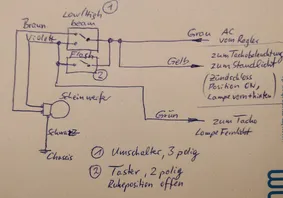 Low/High
beam
①
Braun
Violett
Flash
②
Grau
AC
vom Regler
Gelb
zum Tachobeleuchtung
zum Standlicht
(Zündschloss
Position ON,
Lampe vorn+hinten)
Scheinwerfer
Grün
zum Tacho
Lampe Fernlicht
Schwarz
Chassis
① Umschalter, 3 polig
② Taster, 2 polig
Ruheposition offen